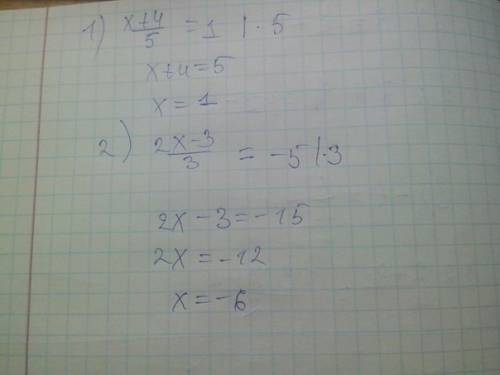 1) x+4/5 = 1 | · 5
x+4=5
x = 1
2) 2x-3/3 = -5 |·3
2x - 3 = -15
2x = -12
x = -6